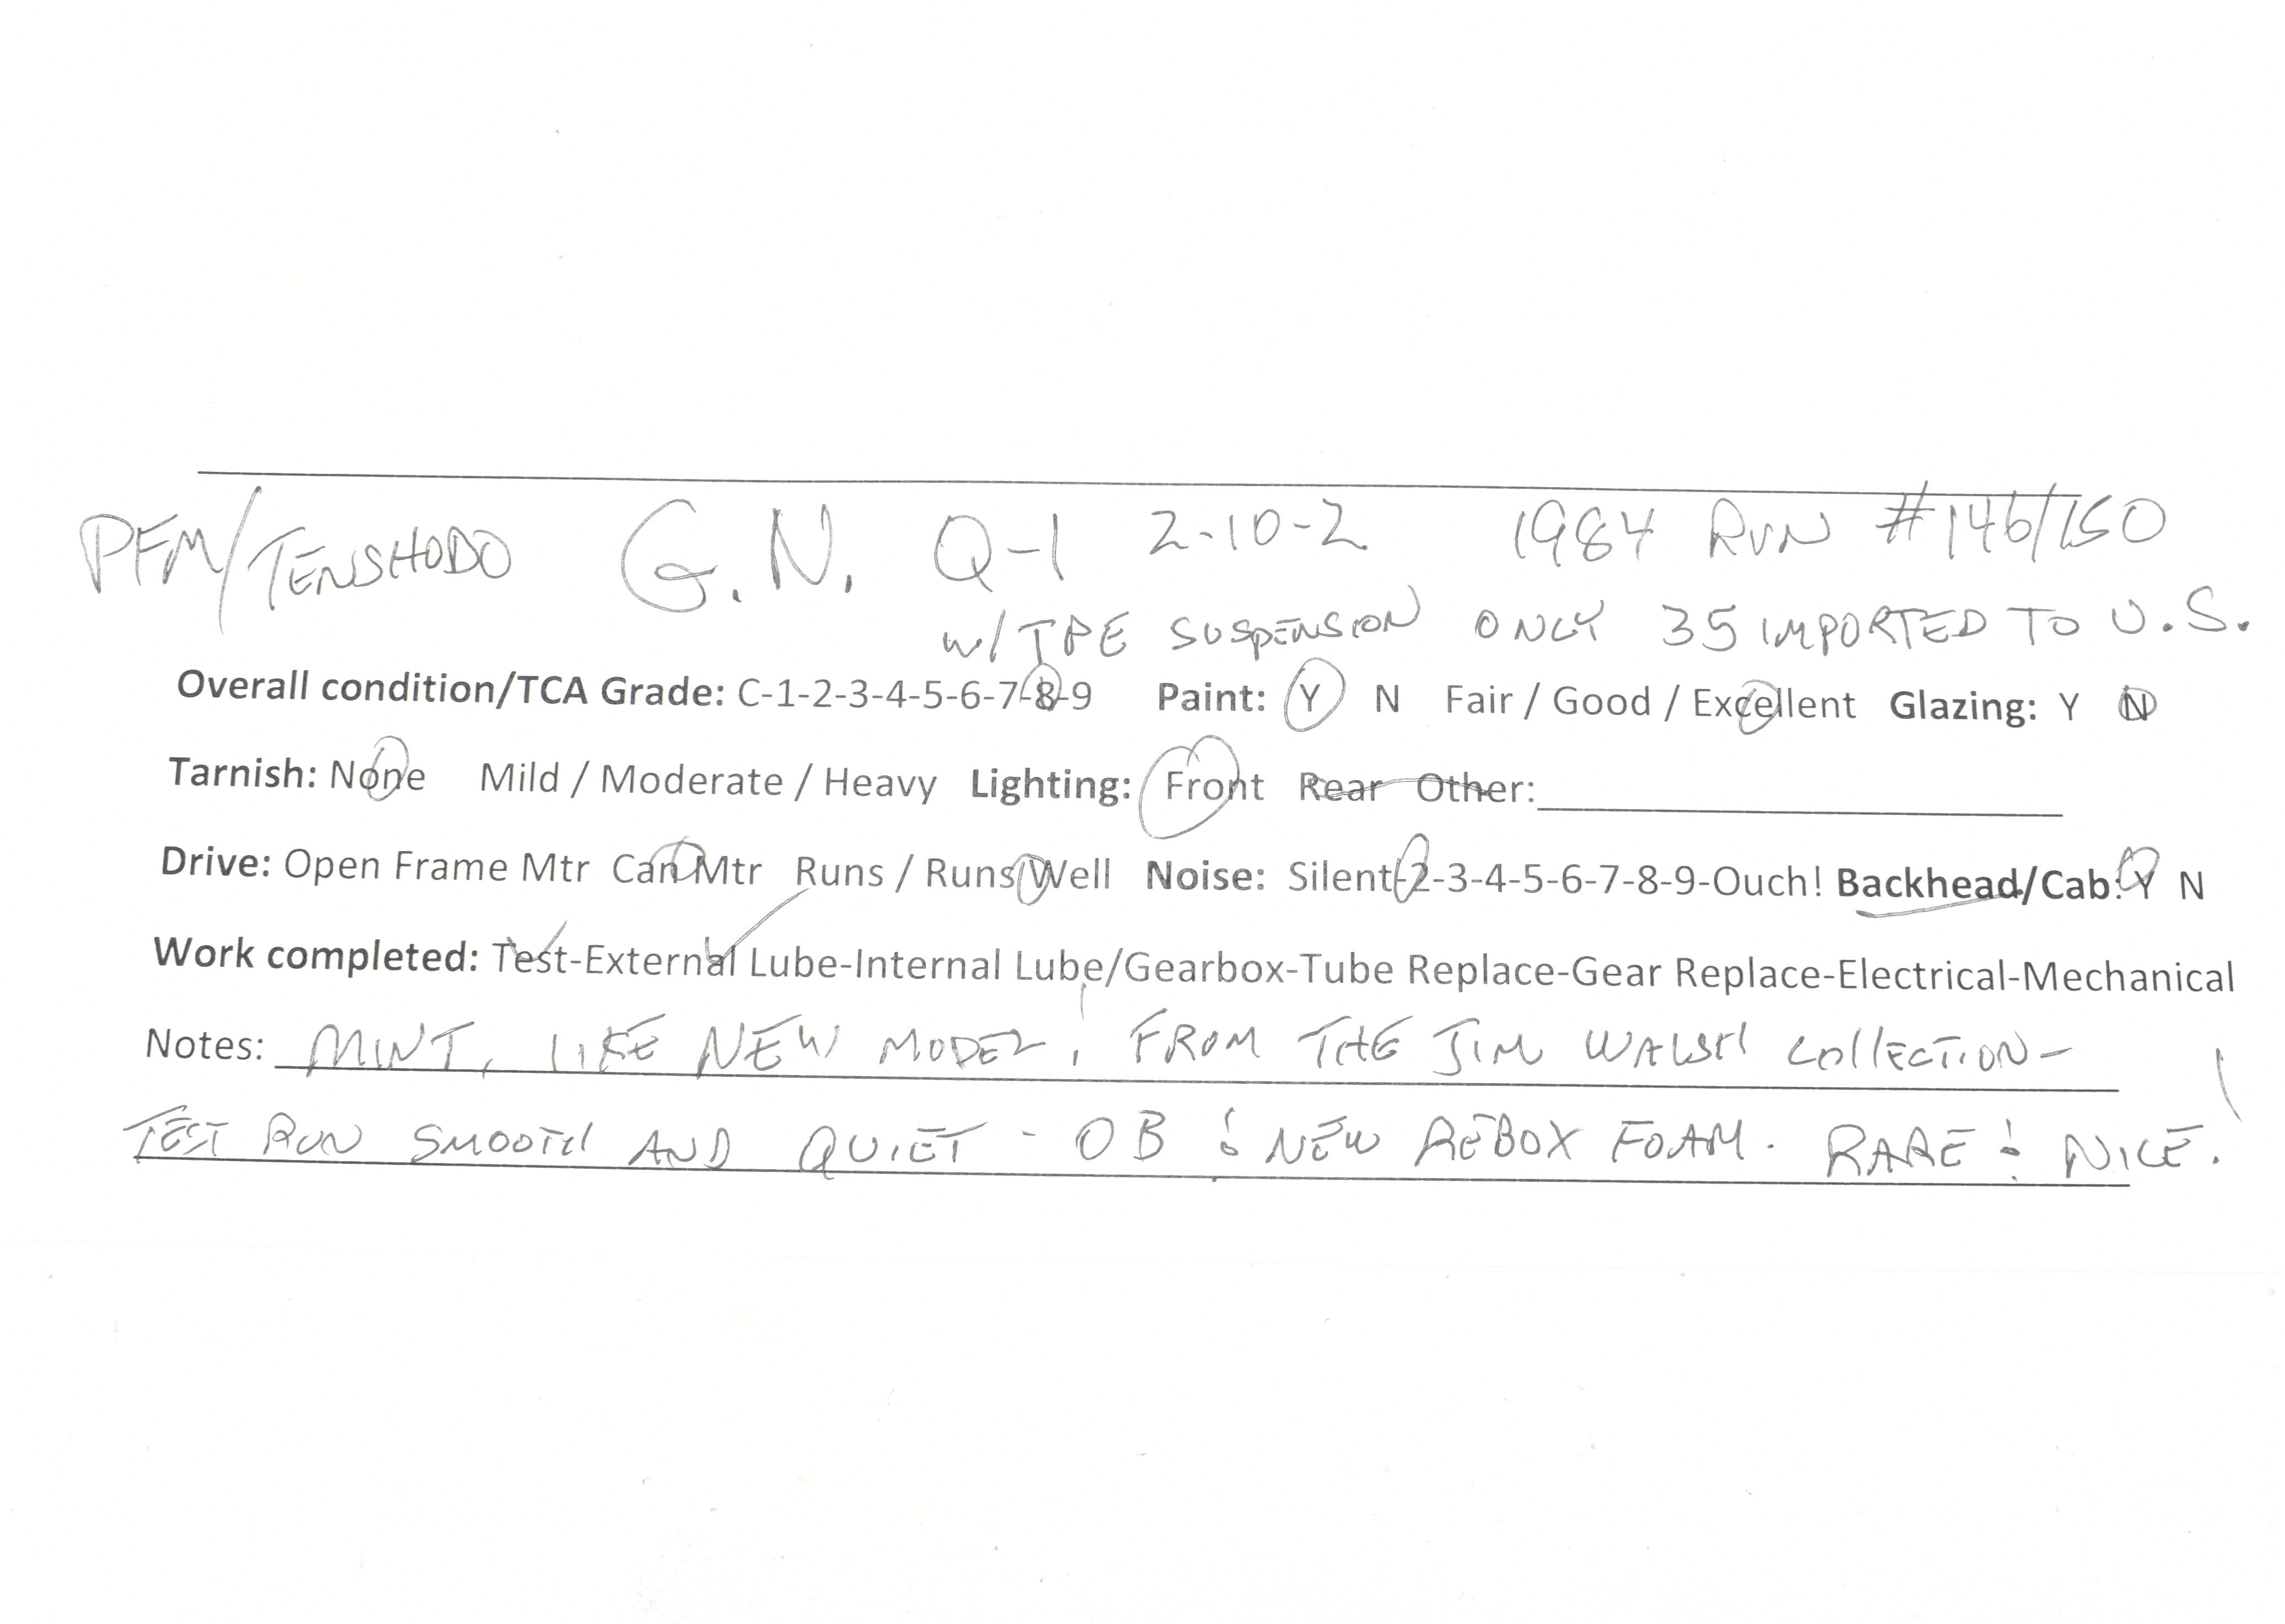 PFM/TENSHODO G.N. Q-1 2-10-2 1984 RUN #146/150
w/TPE SUSPENSION ONLY 35 IMPORTED TO U.S.
Overall condition/TCA Grade: C-1-2-3-4-5-6-7-8-9 Paint: Y N Fair / Good / Excellent Glazing: Y N
Tarnish: None Mild / Moderate / Heavy Lighting: Front Rear Other:
Drive: Open Frame Mtr Can Mtr Runs / Runs Well Noise: Silent-2-3-4-5-6-7-8-9-Ouch! Backhead/Cab: Y N
Work completed: Test-External Lube-Internal Lube/Gearbox-Tube Replace-Gear Replace-Electrical-Mechanical
Notes: MINT, LIKE NEW MODEL! FROM THE JIM WALSH COLLECTION-
TEST RUN SMOOTH AND QUIET - OB & NEW REBOX FOAM. RARE & NICE!